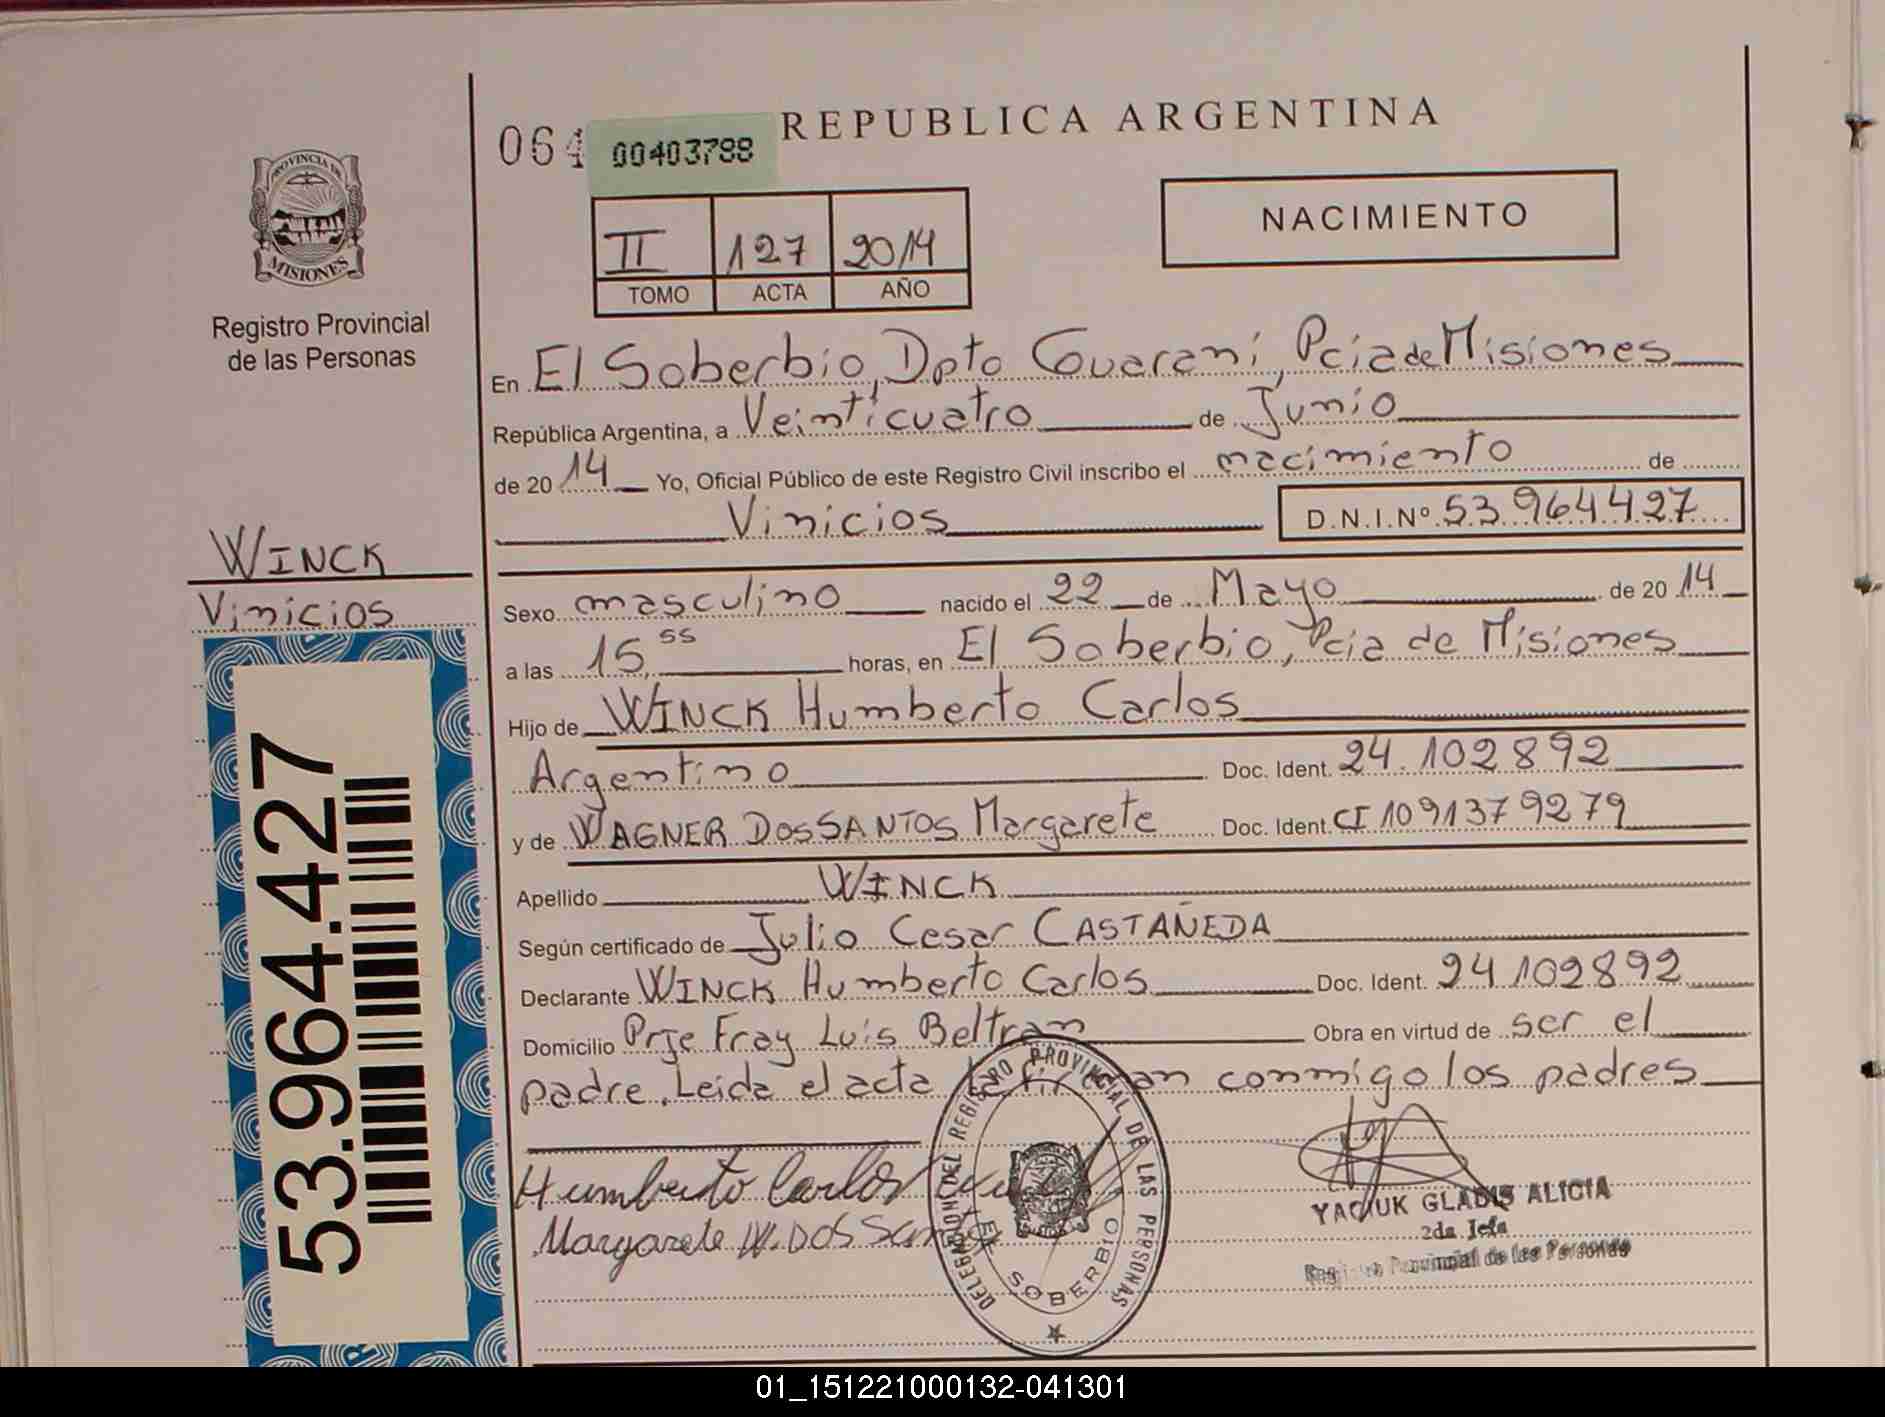 REPUBLICA ARGENTINA
064
00403788
NACIMIENTO
II 127 2014
TOMO ACTA AÑO
PROVINCIA DE
MISIONES
Registro Provincial
de las Personas
WINCK
Vinicios
53.964.427
En El Soberbio, Dpto Guarani, Pcia de Misiones
República Argentina, a Veinticuatro de Junio
de 2014 Yo, Oficial Público de este Registro Civil inscribo el nacimiento de
Vinicios D.N.I.Nº 53.964427
Sexo masculino nacido el 22 de Mayo de 2014
a las 15,55 horas, en El Soberbio, Pcia de Misiones
Hijo de WINCK Humberto Carlos
Argentino Doc. Ident. 24.102892
y de WAGNER DOSSANTOS Margarete Doc. Ident. CI 1091379279
Apellido WINCK
Según certificado de Julio Cesar CASTAÑEDA
Declarante WINCK Humberto Carlos Doc. Ident. 24102892
Domicilio Prje Fray Luis Beltran Obra en virtud de ser el
padre. Leida el acta la firman conmigo los padres
Humberto Carlos
Margarete W. DOS Santos
DELEGACION DEL REGISTRO PROVINCIAL DE LAS PERSONAS
EL SOBERBIO
YACIUK GLADIS ALICIA
2da Jefa
Registro Provincial de las Personas
01_151221000132-041301